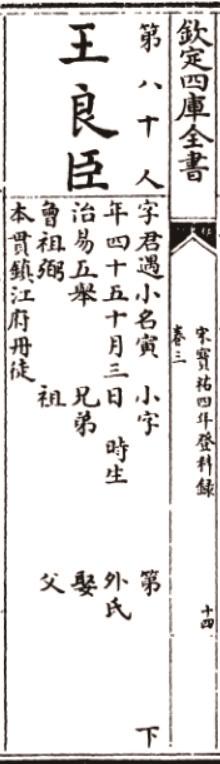 欽定四庫全書
宋寳祐四年登科録
卷三
十四
第八十人
王良臣
字君遇小名寅 小字 第 下
年四十五十月三日 時生 外氏
治易五舉 兄弟 娶
曾祖弼 祖 父
本貫鎮江府丹徒